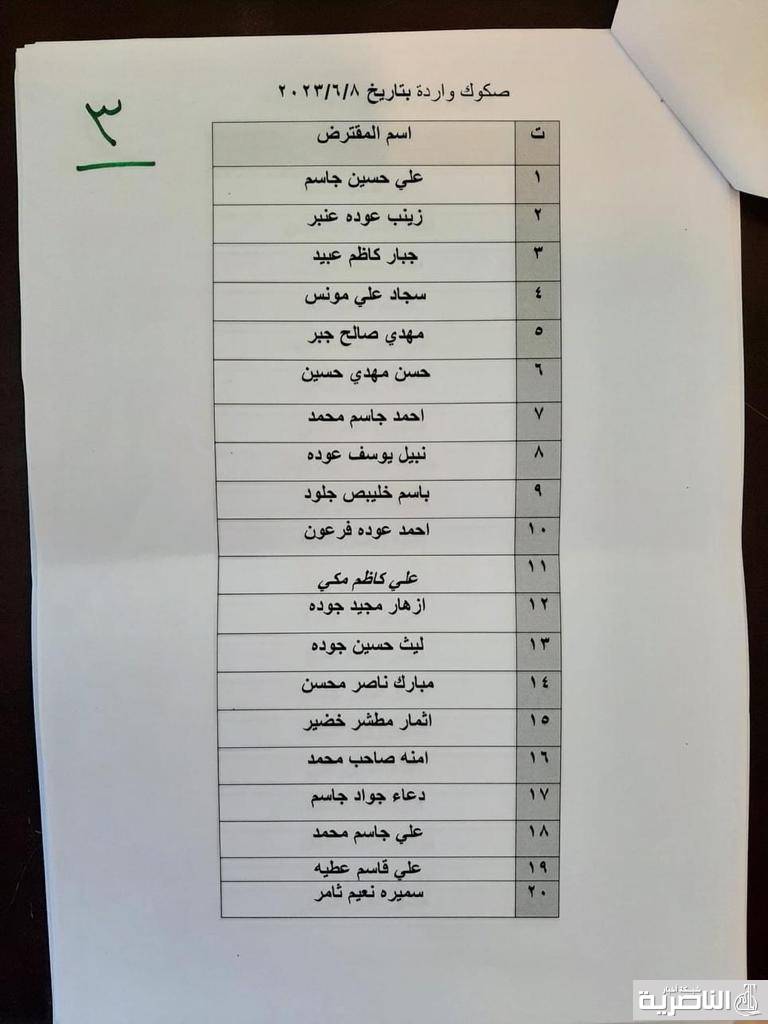 صكوك واردة بتاريخ ٢٠٢٣/٦/٨
٣
ت اسم المقترض
١ علي حسين جاسم
٢ زينب عوده عنبر
٣ جبار كاظم عبيد
٤ سجاد علي مونس
٥ مهدي صالح جبر
٦ حسن مهدي حسين
٧ احمد جاسم محمد
٨ نبيل يوسف عوده
٩ باسم خليبص جلود
١٠ احمد عوده فرعون
١١ علي كاظم مكي
١٢ ازهار مجيد جوده
١٣ ليث حسين جوده
١٤ مبارك ناصر محسن
١٥ اثمار مطشر خضير
١٦ امنه صاحب محمد
١٧ دعاء جواد جاسم
١٨ علي جاسم محمد
١٩ علي قاسم عطيه
٢٠ سميره نعيم ثامر
شبكة أخبار
الناصرية